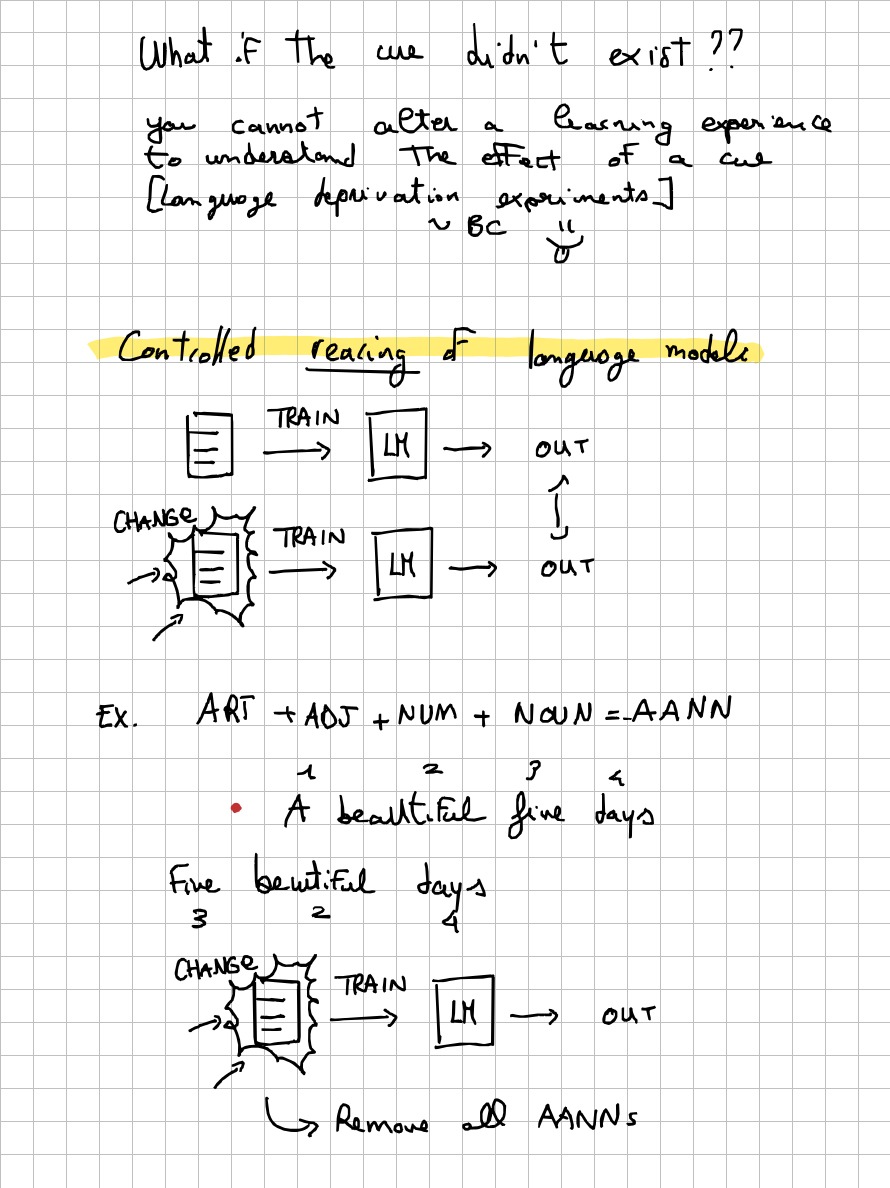 What if the cue didn't exist ??
you cannot alter a learning experience
to understand the effect of a cue
[Language deprivation expriments]
~ BC
Controlled reacing of language models
TRAIN
LM
OUT
CHANGE
TRAIN
LM
OUT
Ex. ART + ADJ + NUM + NOUN = AANN
1 2 3 4
• A beautiful five days
Five beutiful days
3 2 4
CHANGE
TRAIN
LM
OUT
Remove all AANNs